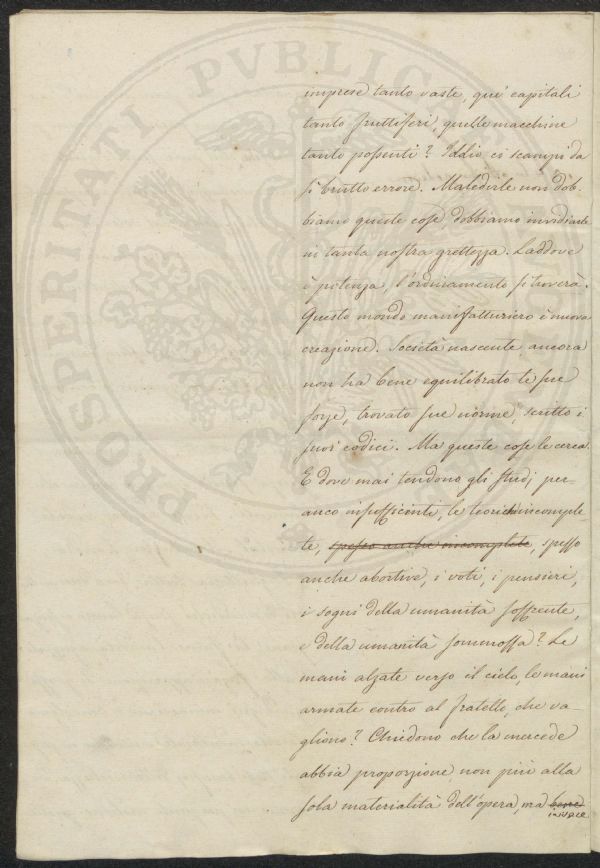 PROSPERITATI PVBLIC
imprese tanto vaste, que' capitali
tanto fruttiferi, quelle macchine
tanto possenti? Iddio ci scampi da
sì brutto errore. Maledirle non dob-
biamo queste cose, dobbiamo invidiarle
in tanta nostra grettezza. Laddove
è potenza, l'ordinamento si troverà.
Questo mondo manifatturiero è nuova
creazione. Società nascente, ancora
non ha bene equilibrato le sue
forze, trovato sue norme, scritto i
suoi codici. Ma queste cose le cerca.
E dove mai tendono gli studj per-
anco insufficienti, le teorich incomple-
te, spesso anche incomplete, spesso
anche abortive, i voti, i pensieri,
i sogni della umanità soffrente,
e della umanità sommossa? Le
mani alzate verso il cielo, le mani
armate contro al fratello, che va-
gliono? Chiedono che la mercede
abbia proporzione non più alla
sola materialità dell'opera, ma bene
invece